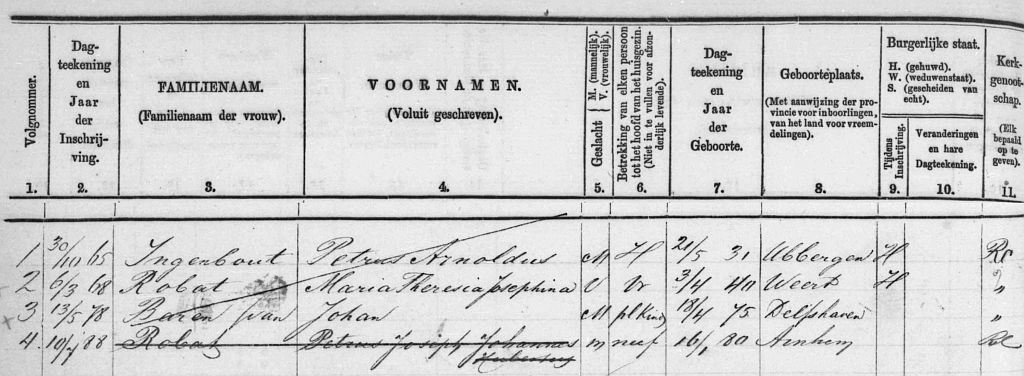 Volgnommer.
Dag-
teekening
en
Jaar
der
Inschrij-
ving.
FAMILIENAAM.
(Familienaam der vrouw).
VOORNAMEN.
(Voluit geschreven).
Geslacht { M. (mannelijk). V. (vrouwelijk).
Betrekking van elken persoon
tot het hoofd van het huisgezin.
(Niet in te vullen voor afzon-
derlijk levende).
Dag-
teekening
en
Jaar
der
Geboorte.
Geboorteplaats.
(Met aanwijzing der pro-
vincie voor inboorlingen,
van het land voor vreem-
delingen).
Burgerlijke staat.
H. (gehuwd).
W. (weduwenstaat).
S. (gescheiden van
echt).
Tijdens
Inschrijving.
Veranderingen
en hare
Dagteekening.
Kerk-
genoot-
schap.
(Elk
bepaald
op te
geven).
1. 2. 3. 4. 5. 6. 7. 8. 9. 10. 11.
1 30/10 65 Ingenbout Petrus Arnoldus M H 21/5 31 Ubbergen H RC
2 6/3 68 Robat Maria Theresia Josephina V Vr 3/4 40 Weert H "
3 13/5 78 Baren van Johan M pl kind 18/4 75 Delfshaven "
4. 10/7 88 Robat Petrus Joseph Johannes m neef 16/1 80 Arnhem RC